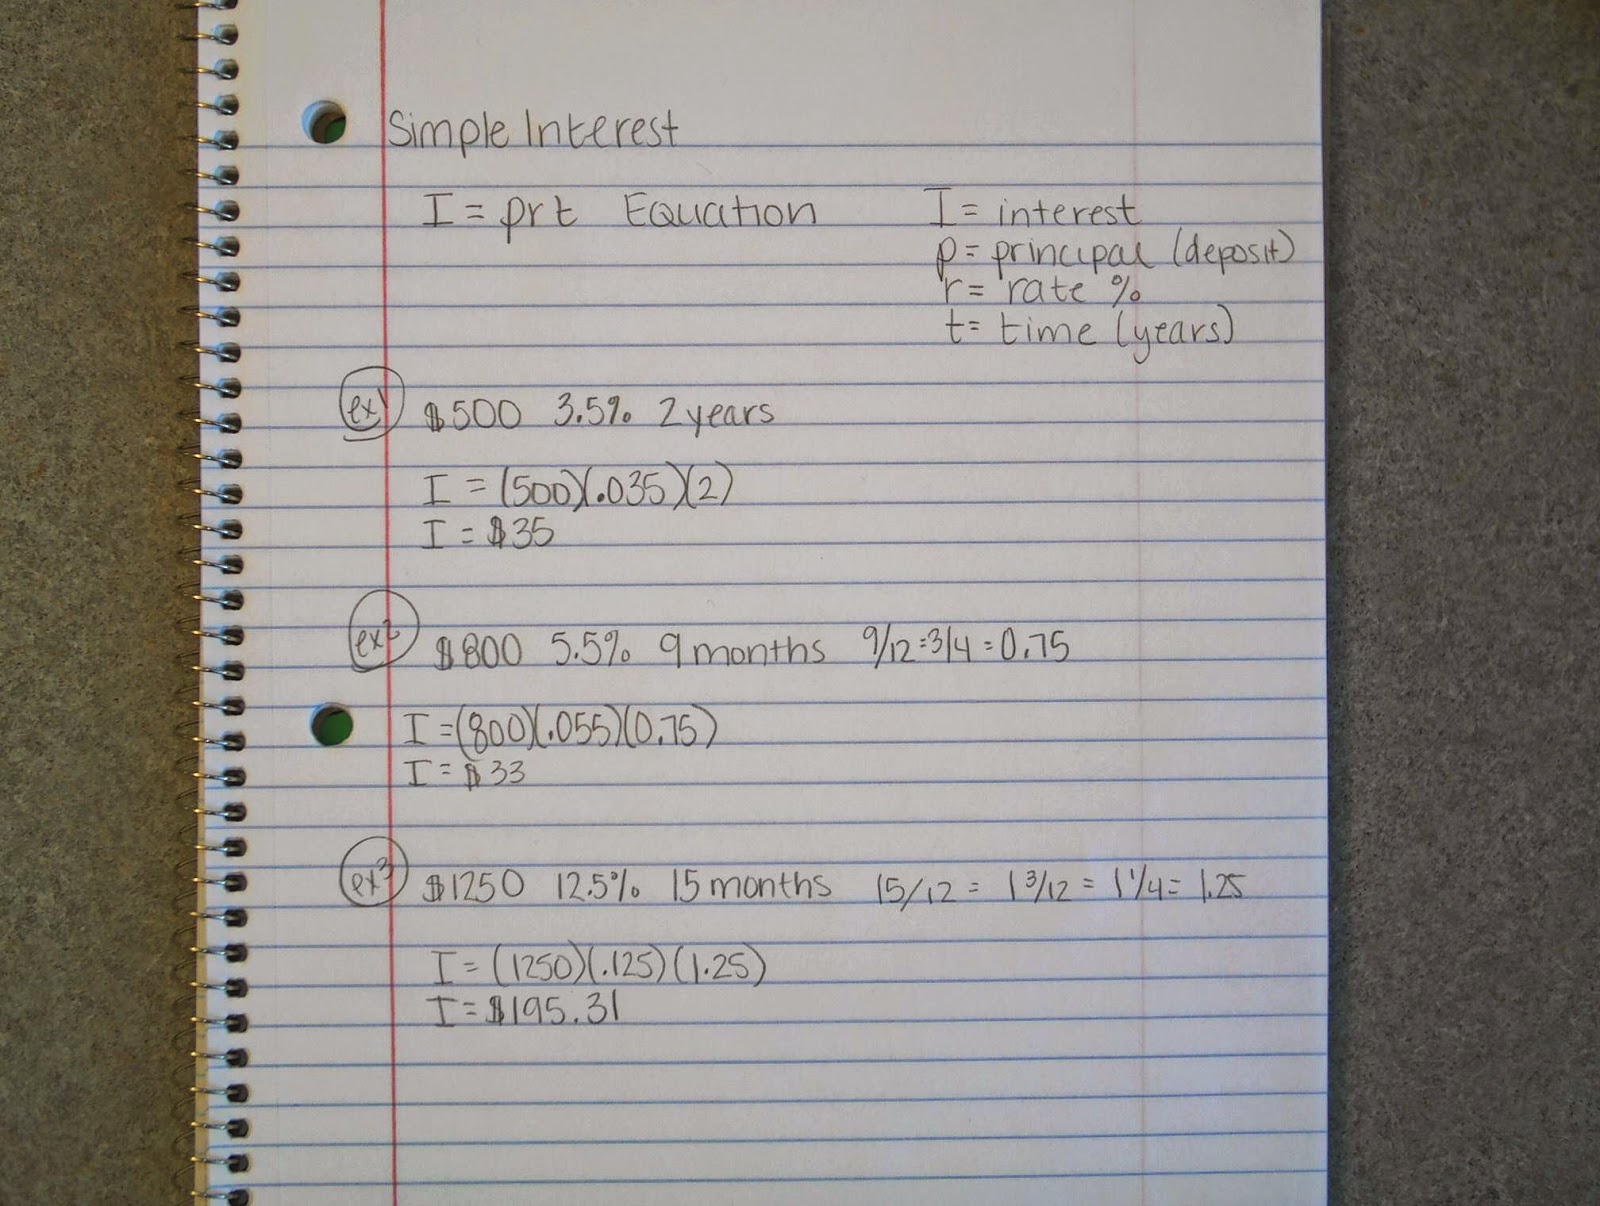 Simple Interest
I = prt Equation I = interest
p = principal (deposit)
r = rate %
t = time (years)
ex1 $500 3.5% 2 years
I = (500)(.035)(2)
I = $35
ex2 $800 5.5% 9 months 9/12 = 3/4 = 0.75
I = (800)(.055)(0.75)
I = $33
ex3 $1250 12.5% 15 months 15/12 = 1 3/12 = 1 1/4 = 1.25
I = (1250)(.125)(1.25)
I = $195.31